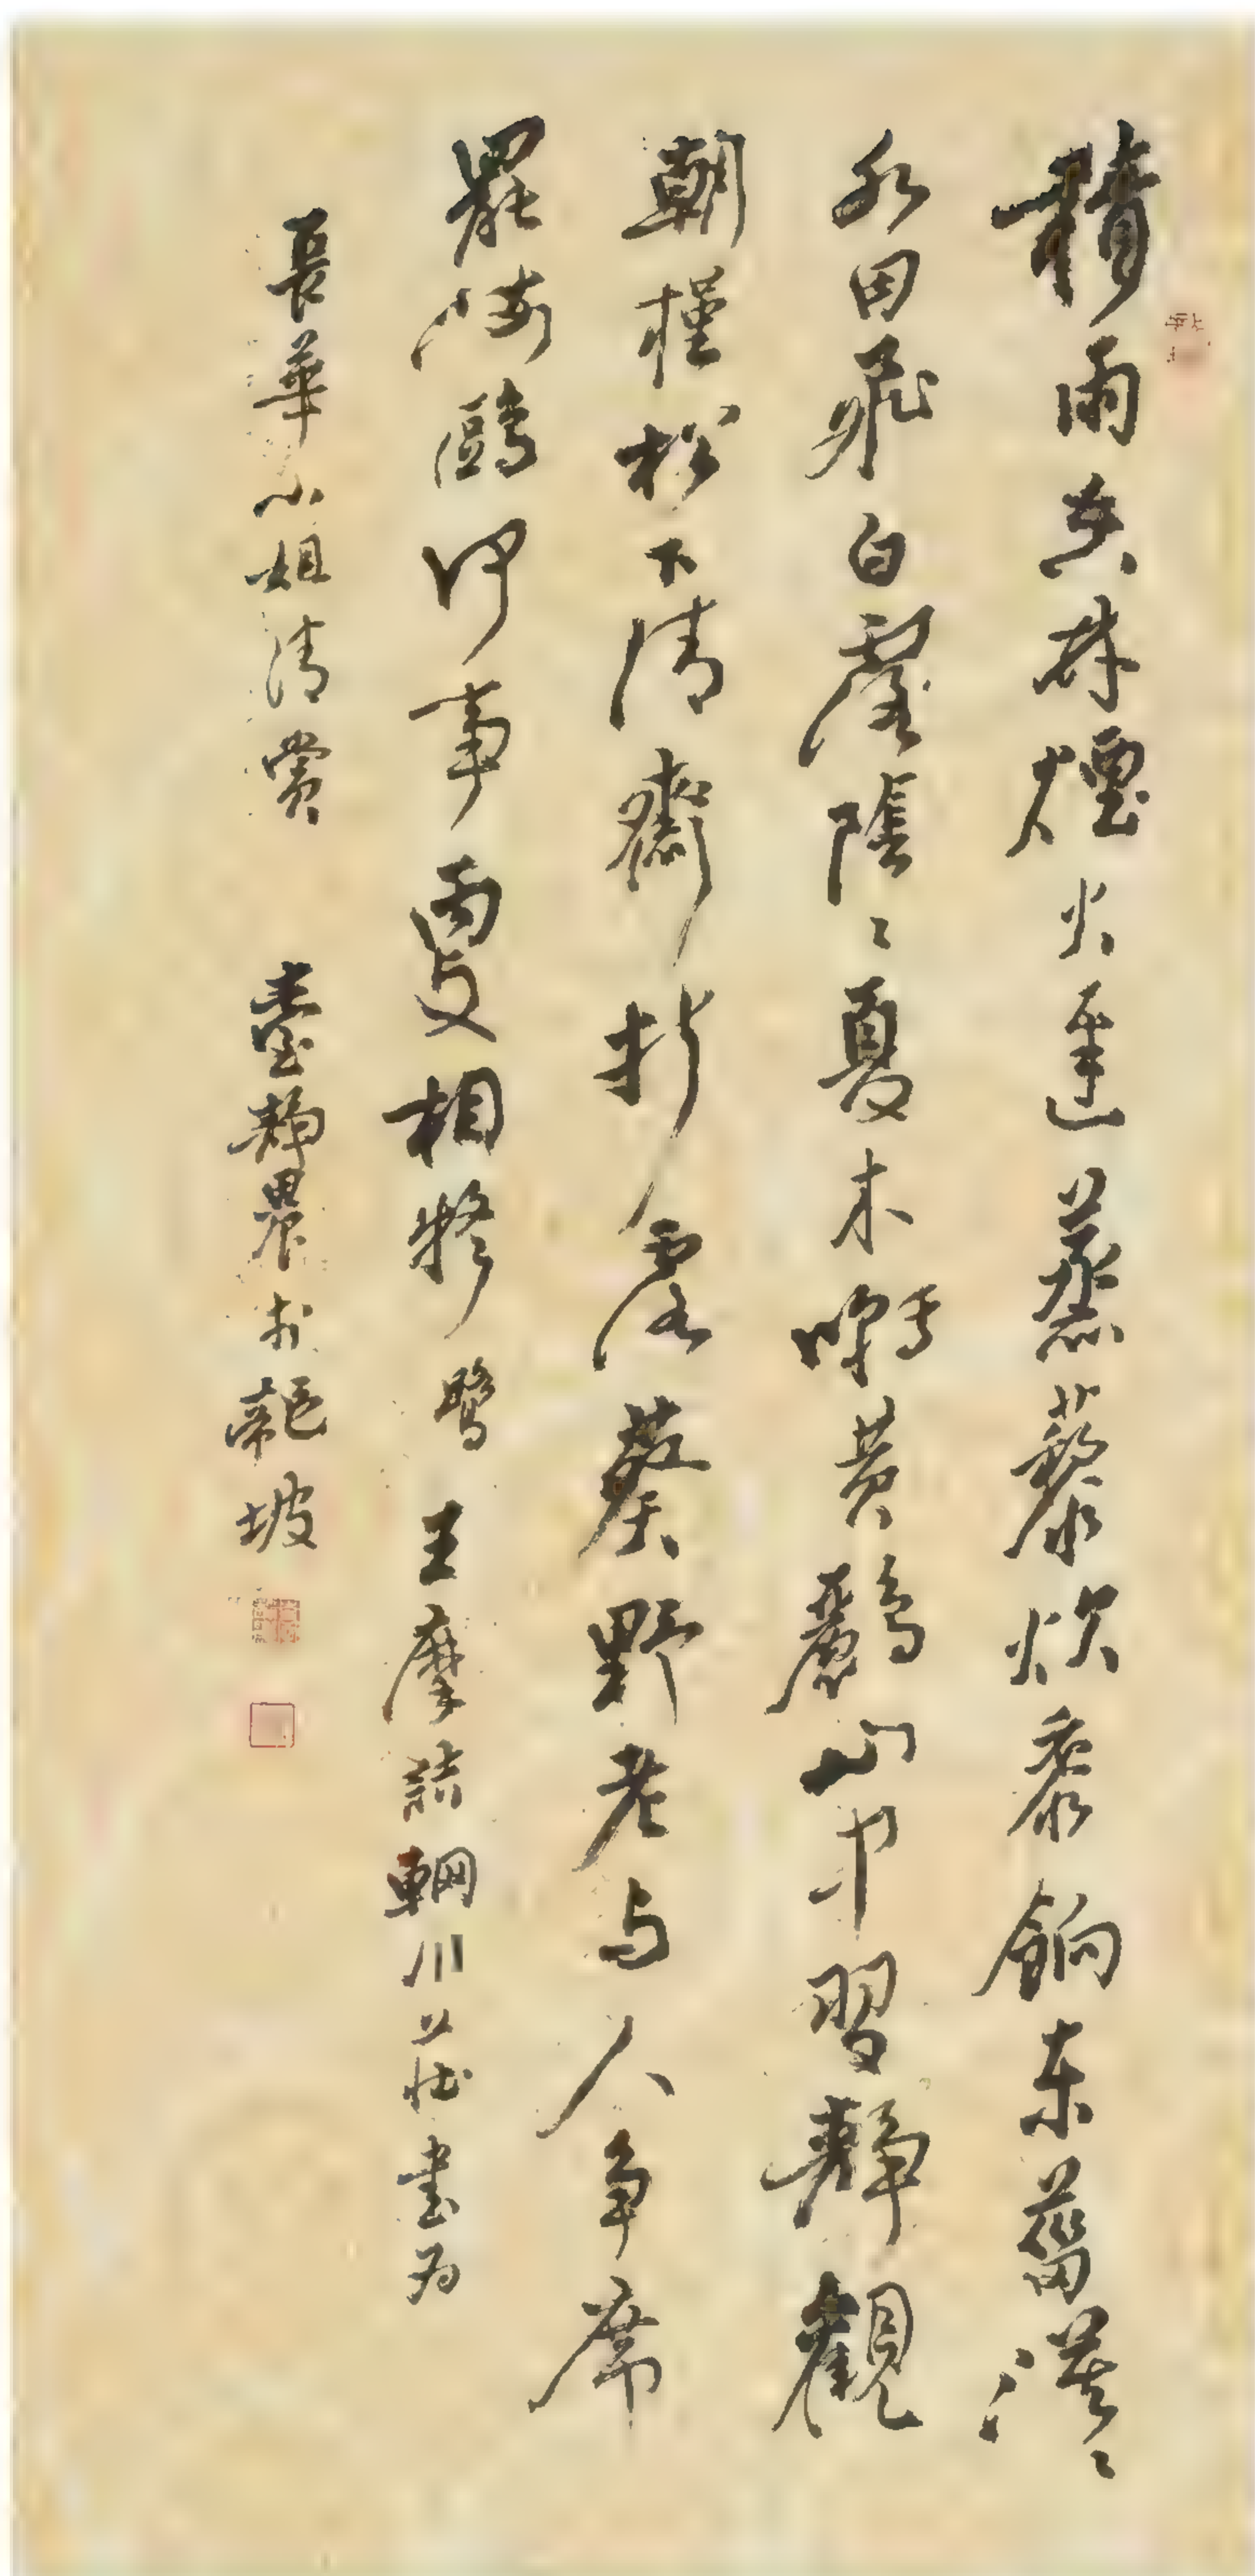 積雨空林煙火遲蒸藜炊黍餉東菑漠〻
水田飛白鷺陰〻夏木囀黃鸝山中習靜觀
朝槿松下清齋折露葵野老与人爭席
罷海鷗何事更相疑 王摩詰輞川莊書為
長華小姐清賞 臺靜農於龍坡